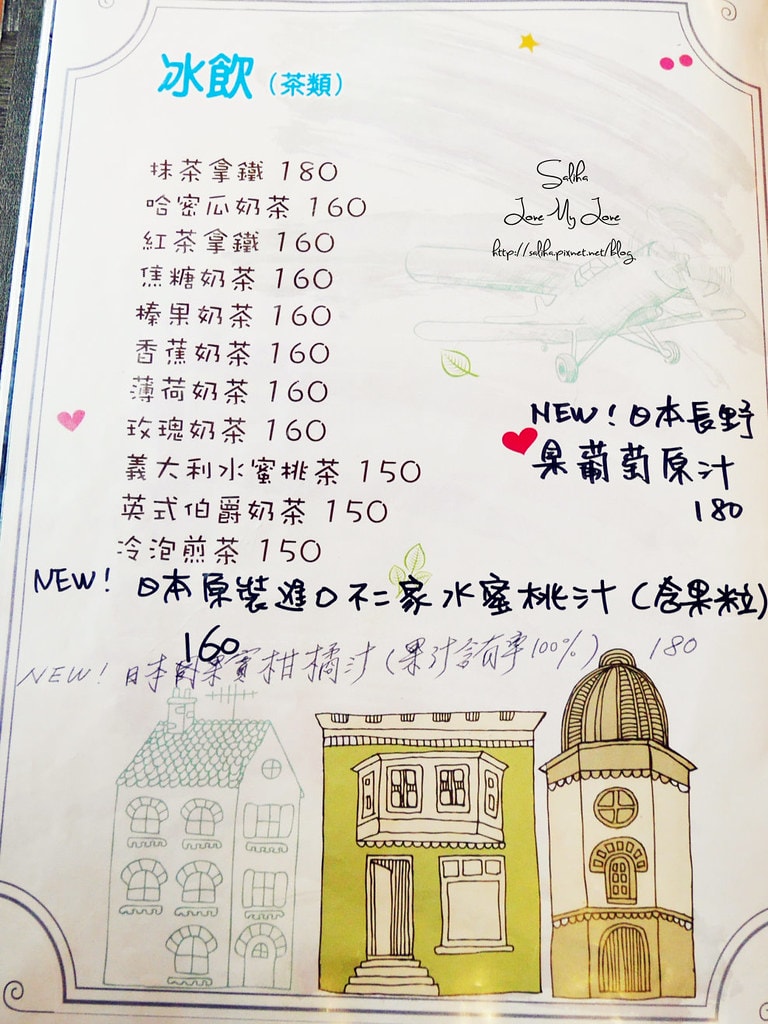 冰飲（茶類）
抹茶拿鐵 180
哈密瓜奶茶 160
紅茶拿鐵 160
焦糖奶茶 160
榛果奶茶 160
香蕉奶茶 160
薄荷奶茶 160
玫瑰奶茶 160
義大利水蜜桃茶 150
英式伯爵奶茶 150
冷泡煎茶 150
Saliha
Love My Love
http://saliha.pixnet.net/blog
NEW！日本長野
果葡萄原汁
180
NEW！日本原裝進口不二家水蜜桃汁（含果粒）
160
NEW！日本 果實柑橘汁（果汁含有率100%） 180